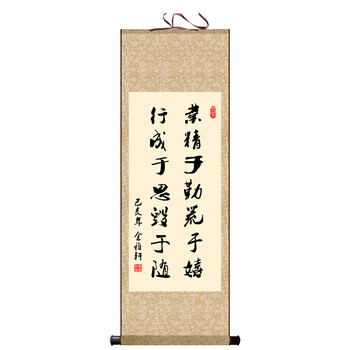 業精于勤荒于嬉
行成于思毀于随
己亥年 金雅轩